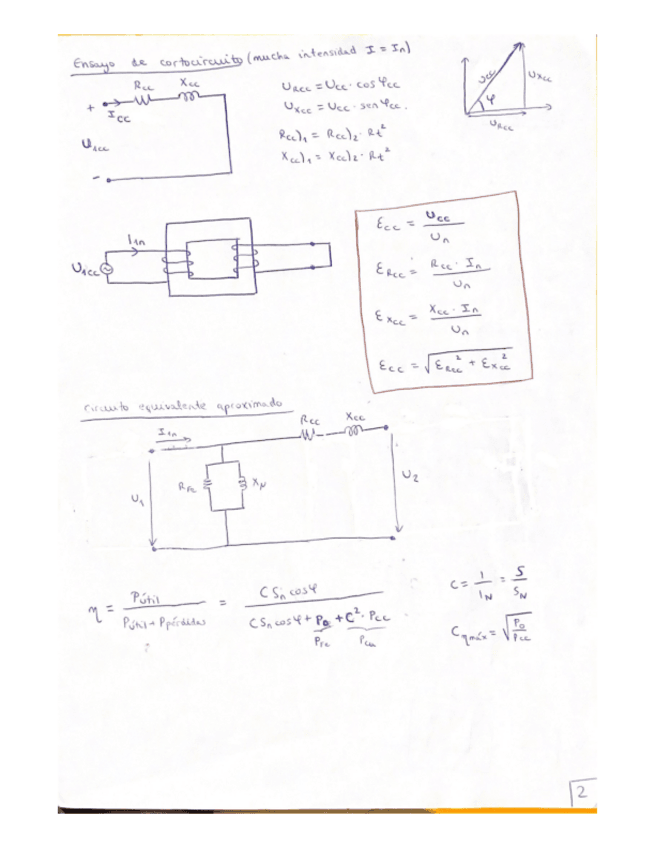 Ensayo de cortocircuito (mucha intensidad I = In)
Rcc Xcc
+ Icc
U1cc
-
URcc = Ucc · cos φcc
UXcc = Ucc · sen φcc.
Rcc)1 = Rcc)2 · Rt²
Xcc)1 = Xcc)2 · Rt²
Ucc UXcc
φ
URcc
I1n
U1cc
Ecc = Ucc / Un
ERcc = Rcc · In / Un
EXcc = Xcc · In / Un
Ecc = √(ERcc² + EXcc²)
Circuito equivalente aproximado
I1n Rcc Xcc
U1 RFe Xμ U2
η = Pútil / (Pútil + Ppérdidas) = C Sn cos φ / (C Sn cos φ + P0 + C² · Pcc)
PFe Pcu
C = I / IN = S / SN
Cηmáx = √(P0 / Pcc)
2